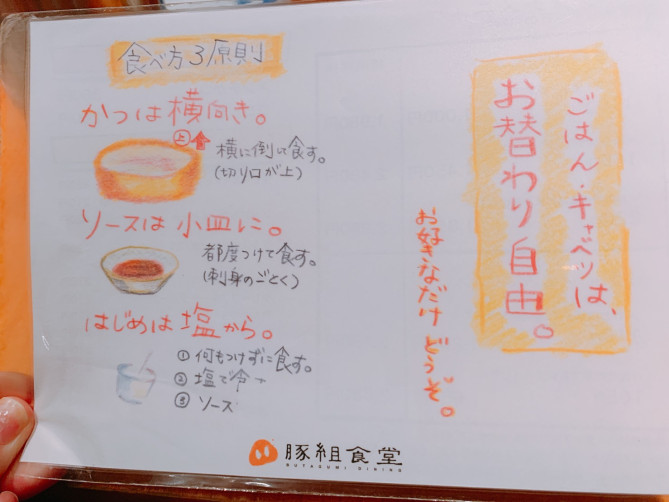 食べ方3原則
かつは横向き。
上
横に倒して食す。
(切り口が上)
ソースは小皿に。
都度つけて食す。
(刺身のごとく)
はじめは塩から。
① 何もつけずに食す。
② 塩で
③ ソース
ごはん・キャベツは、
お替わり自由。
お好きなだけ どうぞ。
豚組食堂
BUTAGUMI DINING